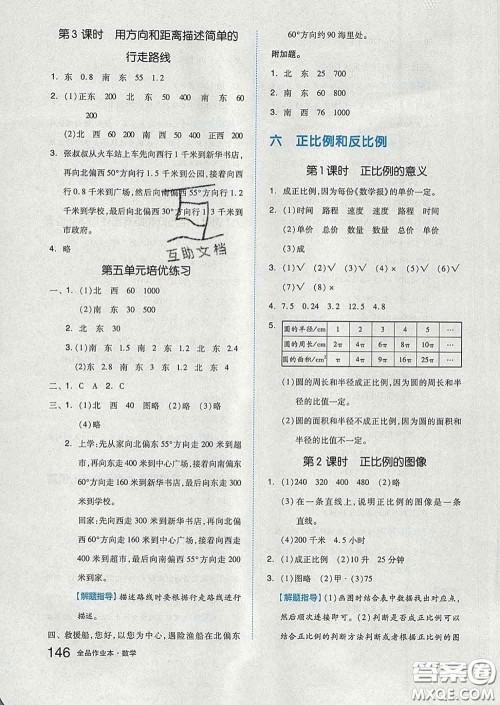 第3课时 用方向和距离描述简单的
行走路线
1. 东 0.8 南东 55 1.2
2. (1)正东 200 北 西 50 400 东 60
200
(2)北 西 60 200 南 西 50 400 西
200
3. 张叔叔从火车站上车先向西行1千米到新华书店,
再向北偏西50°方向行1.5千米到公园,接着向西
行0.8千米到广场,然后向南偏西55°方向行1.2
千米到学校,最后向北偏西30°方向行1.3千米到
市政府。
4. 略
第五单元培优练习
一、1. (1)北 西 60 1000
(2)南 东 50 800
2. 北 东 30
3. (1)南 东 1.5 南 东 1.2 北 东 2.4
(2)东 2 南 东 1.2 北 东 4
二、1. C A 2. C
三、1. (1)北 西 40 图略 (2)略 (3)略
(4)略
2. 上学:先从家向北偏东55°方向走200米到超市,
再向东走400米到中心广场,接着向南偏东60°方
向走160米到新华书店,最后向东走200
米到学校。
回家:先向西走200米到新华书店,再向北偏
西60°方向走160米到中心广场,接着向西走
400米到超市,最后向南偏西55°方向走200米
到家。
【解题指导】描述路线时要根据行走路线进行
描述。
四、救援船,您好,以您为中心,遇险渔船在北偏东
146 全品作业本·数学
60°方向约90海里处。
附加题。
1. 北 东 700
2. 南 东 60 800
3. 南 西 76 1000
六 正比例和反比例
第1课时 正比例的意义
1. 成正比例,因为每份《数学报》的单价一定。
2. (1)时间 路程 速度 速度 路程 时间
(2)单价 总价 数量 数量 总价 单价
(3)成
3. (1)√ (2)√ (3)× (4)√ (5)× (6)√
(7)√ (8)×
4. 7.5 0.24 3.2
5.
圆的半径/cm 1 2 3 4 5 …
圆的周长/cm 2π 4π 6π 8π 10π …
圆的面积/cm² π 4π 9π 16π 25π …
(1)圆的周长和半径成正比例,因为圆的周长和半
径的比值一定。
(2)圆的面积和半径不成正比例,因为圆的面积和
半径的比值不一定。
第2课时 正比例的图像
1. (1)240 320 400 480 (2)图略
(3)在一条直线上,说明正比例的图像是一条
直线。
(4)200千米 4.5小时
2. (1)成正比例 (2)10升 25分钟
3. (1)图略 (2)甲·(3)75
【解题指导】(1)画图时结合表中数据找出对应点,
然后顺次连接即可。(2)判断是否成正比例可以
结合正比例的判断方法判断或者根据正比例的图
互助文档
答案圈
MXQE.COM